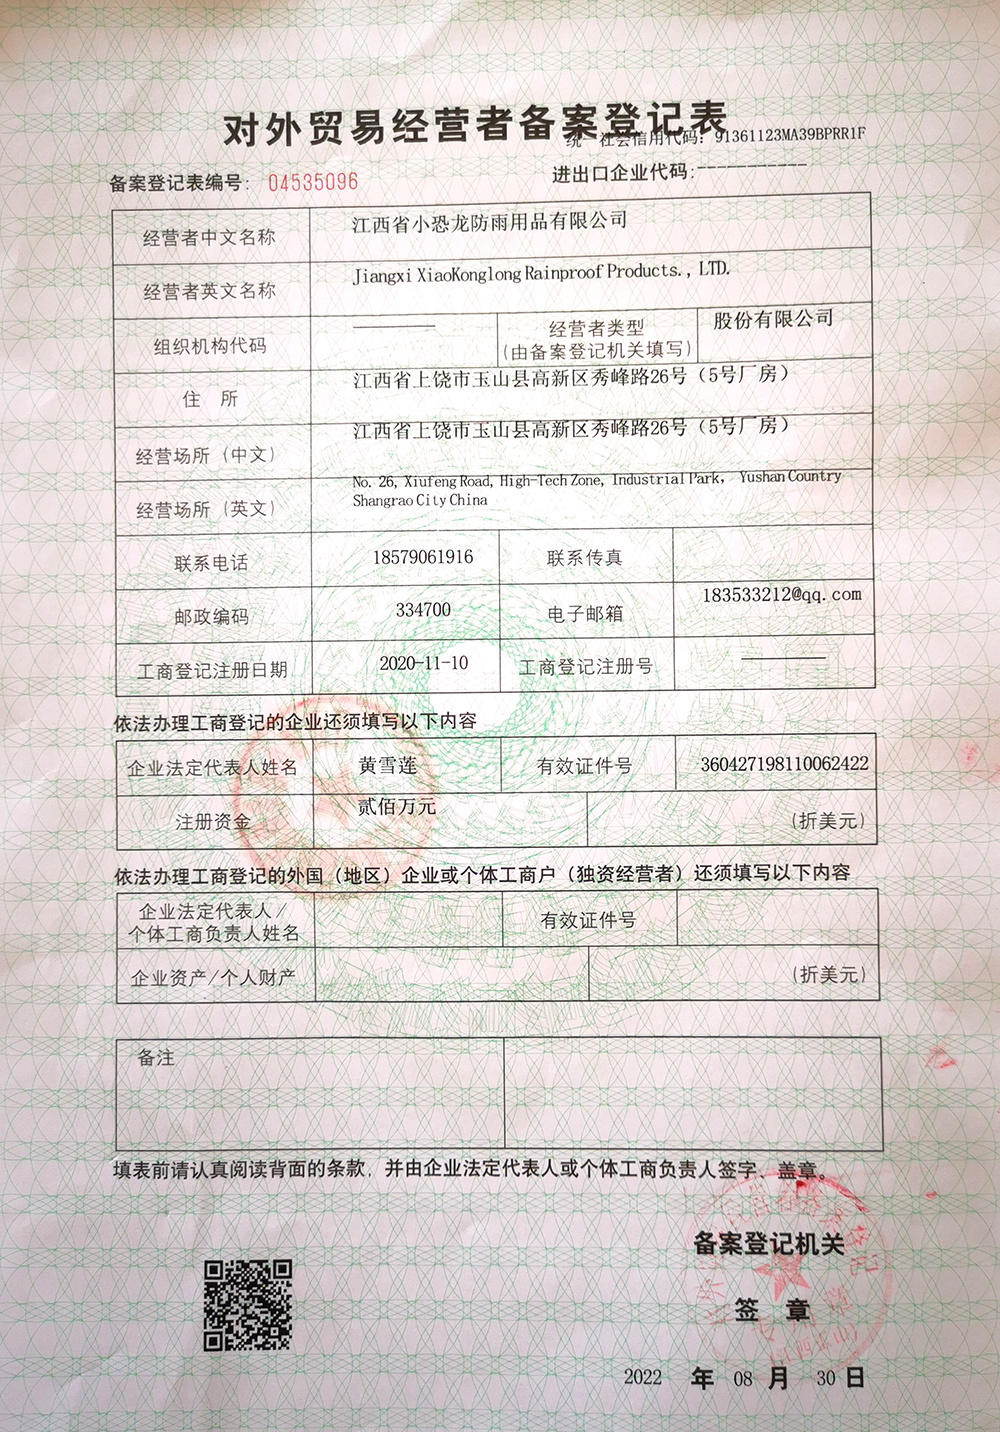 对外贸易经营者备案登记表
统一社会信用代码：91361123MA39BPRR1F
备案登记表编号： 04535096
进出口企业代码:-----------
经营者中文名称 江西省小恐龙防雨用品有限公司
经营者英文名称 Jiangxi XiaoKonglong Rainproof Products., LTD.
组织机构代码 ———— 经营者类型 股份有限公司
(由备案登记机关填写)
住 所 江西省上饶市玉山县高新区秀峰路26号（5号厂房）
经营场所（中文） 江西省上饶市玉山县高新区秀峰路26号（5号厂房）
经营场所（英文） No. 26, Xiufeng Road, High-Tech Zone, Industrial Park， Yushan Country
Shangrao City China
联系电话 18579061916 联系传真
邮政编码 334700 电子邮箱 183533212@qq.com
工商登记注册日期 2020-11-10 工商登记注册号 ————
依法办理工商登记的企业还须填写以下内容
企业法定代表人姓名 黄雪莲 有效证件号 360427198110062422
注册资金 贰佰万元 (折美元)
依法办理工商登记的外国（地区）企业或个体工商户（独资经营者）还须填写以下内容
企业法定代表人/
个体工商负责人姓名 有效证件号
企业资产/个人财产 (折美元)
备注
填表前请认真阅读背面的条款，并由企业法定代表人或个体工商负责人签字、盖章。
备案登记机关
签 章
2022 年 08 月 30 日